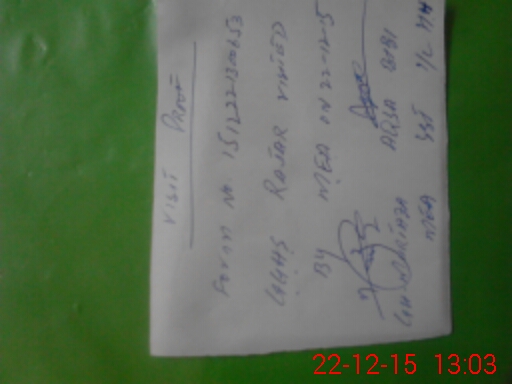 VISIT PROOF
FORM No. 151222130653
GGHS RAJAR VISITED
BY MEA ON 22-12-15
ARSA BIBI
MEA SST
22-12-15 13:03